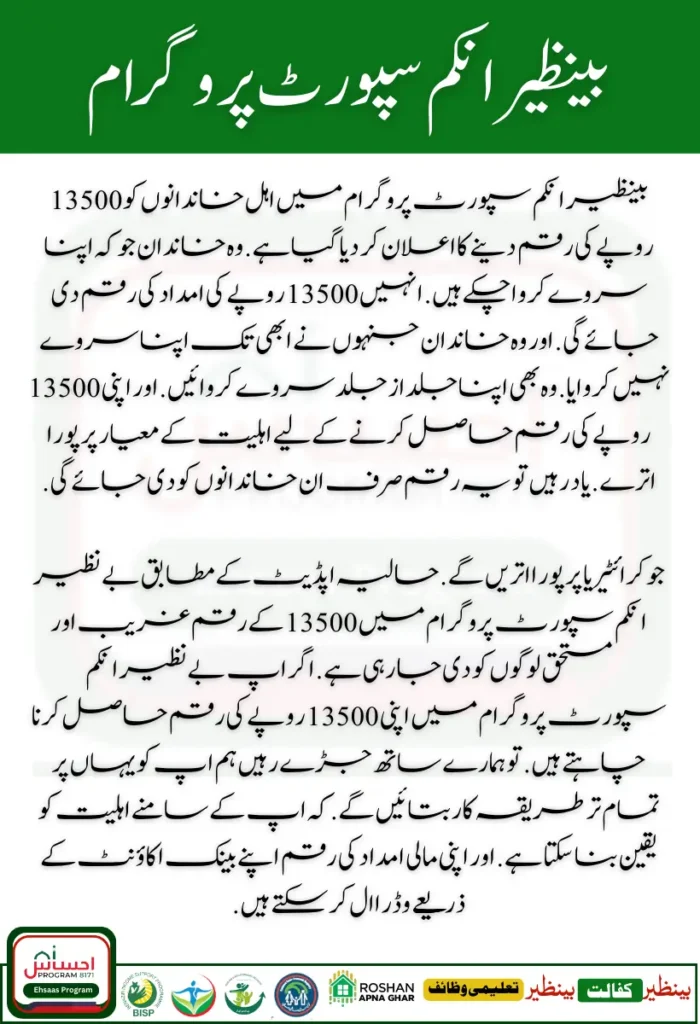 بینظیر انکم سپورٹ پروگرام
بینظیر انکم سپورٹ پروگرام میں اہل خاندانوں کو 13500
روپے کی رقم دینے کا اعلان کر دیا گیا ہے. وہ خاندان جو کہ اپنا
سروے کروا چکے ہیں. انہیں 13500 روپے کی امداد کی رقم دی
جائے گی. اور وہ خاندان جنہوں نے ابھی تک اپنا سروے
نہیں کروایا. وہ بھی اپنا جلد از جلد سروے کروائیں. اور اپنی 13500
روپے کی رقم حاصل کرنے کے لیے اہلیت کے معیار پر پورا
اترے. یاد رہیں تو یہ رقم صرف ان خاندانوں کو دی جائے گی.
جو کرائٹیریا پر پورا اتریں گے. حالیہ اپڈیٹ کے مطابق بے نظیر
انکم سپورٹ پروگرام میں 13500 کے رقم غریب اور
مستحق لوگوں کو دی جا رہی ہے. اگر اپ بے نظیر انکم
سپورٹ پروگرام میں اپنی 13500 روپے کی رقم حاصل کرنا
چاہتے ہیں. تو ہمارے ساتھ جڑے رہیں ہم اپ کو یہاں پر
تمام تر طریقہ کار بتائیں گے. کہ اپ کے سامنے اہلیت کو
یقین بنا سکتا ہے. اور اپنی مالی امداد کی رقم اپنے بینک اکاؤنٹ کے
ذریعے وڈراال کر سکتے ہیں.
احساس
PROGRAM 8171
Ehsaas Program
BISP
ROSHAN
APNA GHAR
بینظیر تعلیمی وظائف
بینظیر کفالت